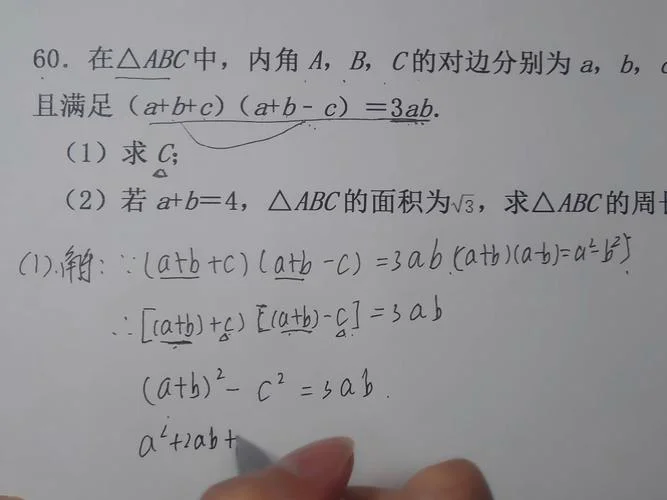 60. 在△ABC中，内角 A，B，C的对边分别为 a，b，c
且满足（a+b+c）（a+b－c）=3ab.
（1）求 C;
（2）若 a+b=4，△ABC的面积为√3，求△ABC的周长
(1).解: ∵(a+b+c)(a+b-c)=3ab.{(a+b)(a-b)=a²-b²}
∴[(a+b)+c][(a+b)-c]=3ab
(a+b)²-c²=3ab.
a²+2ab+